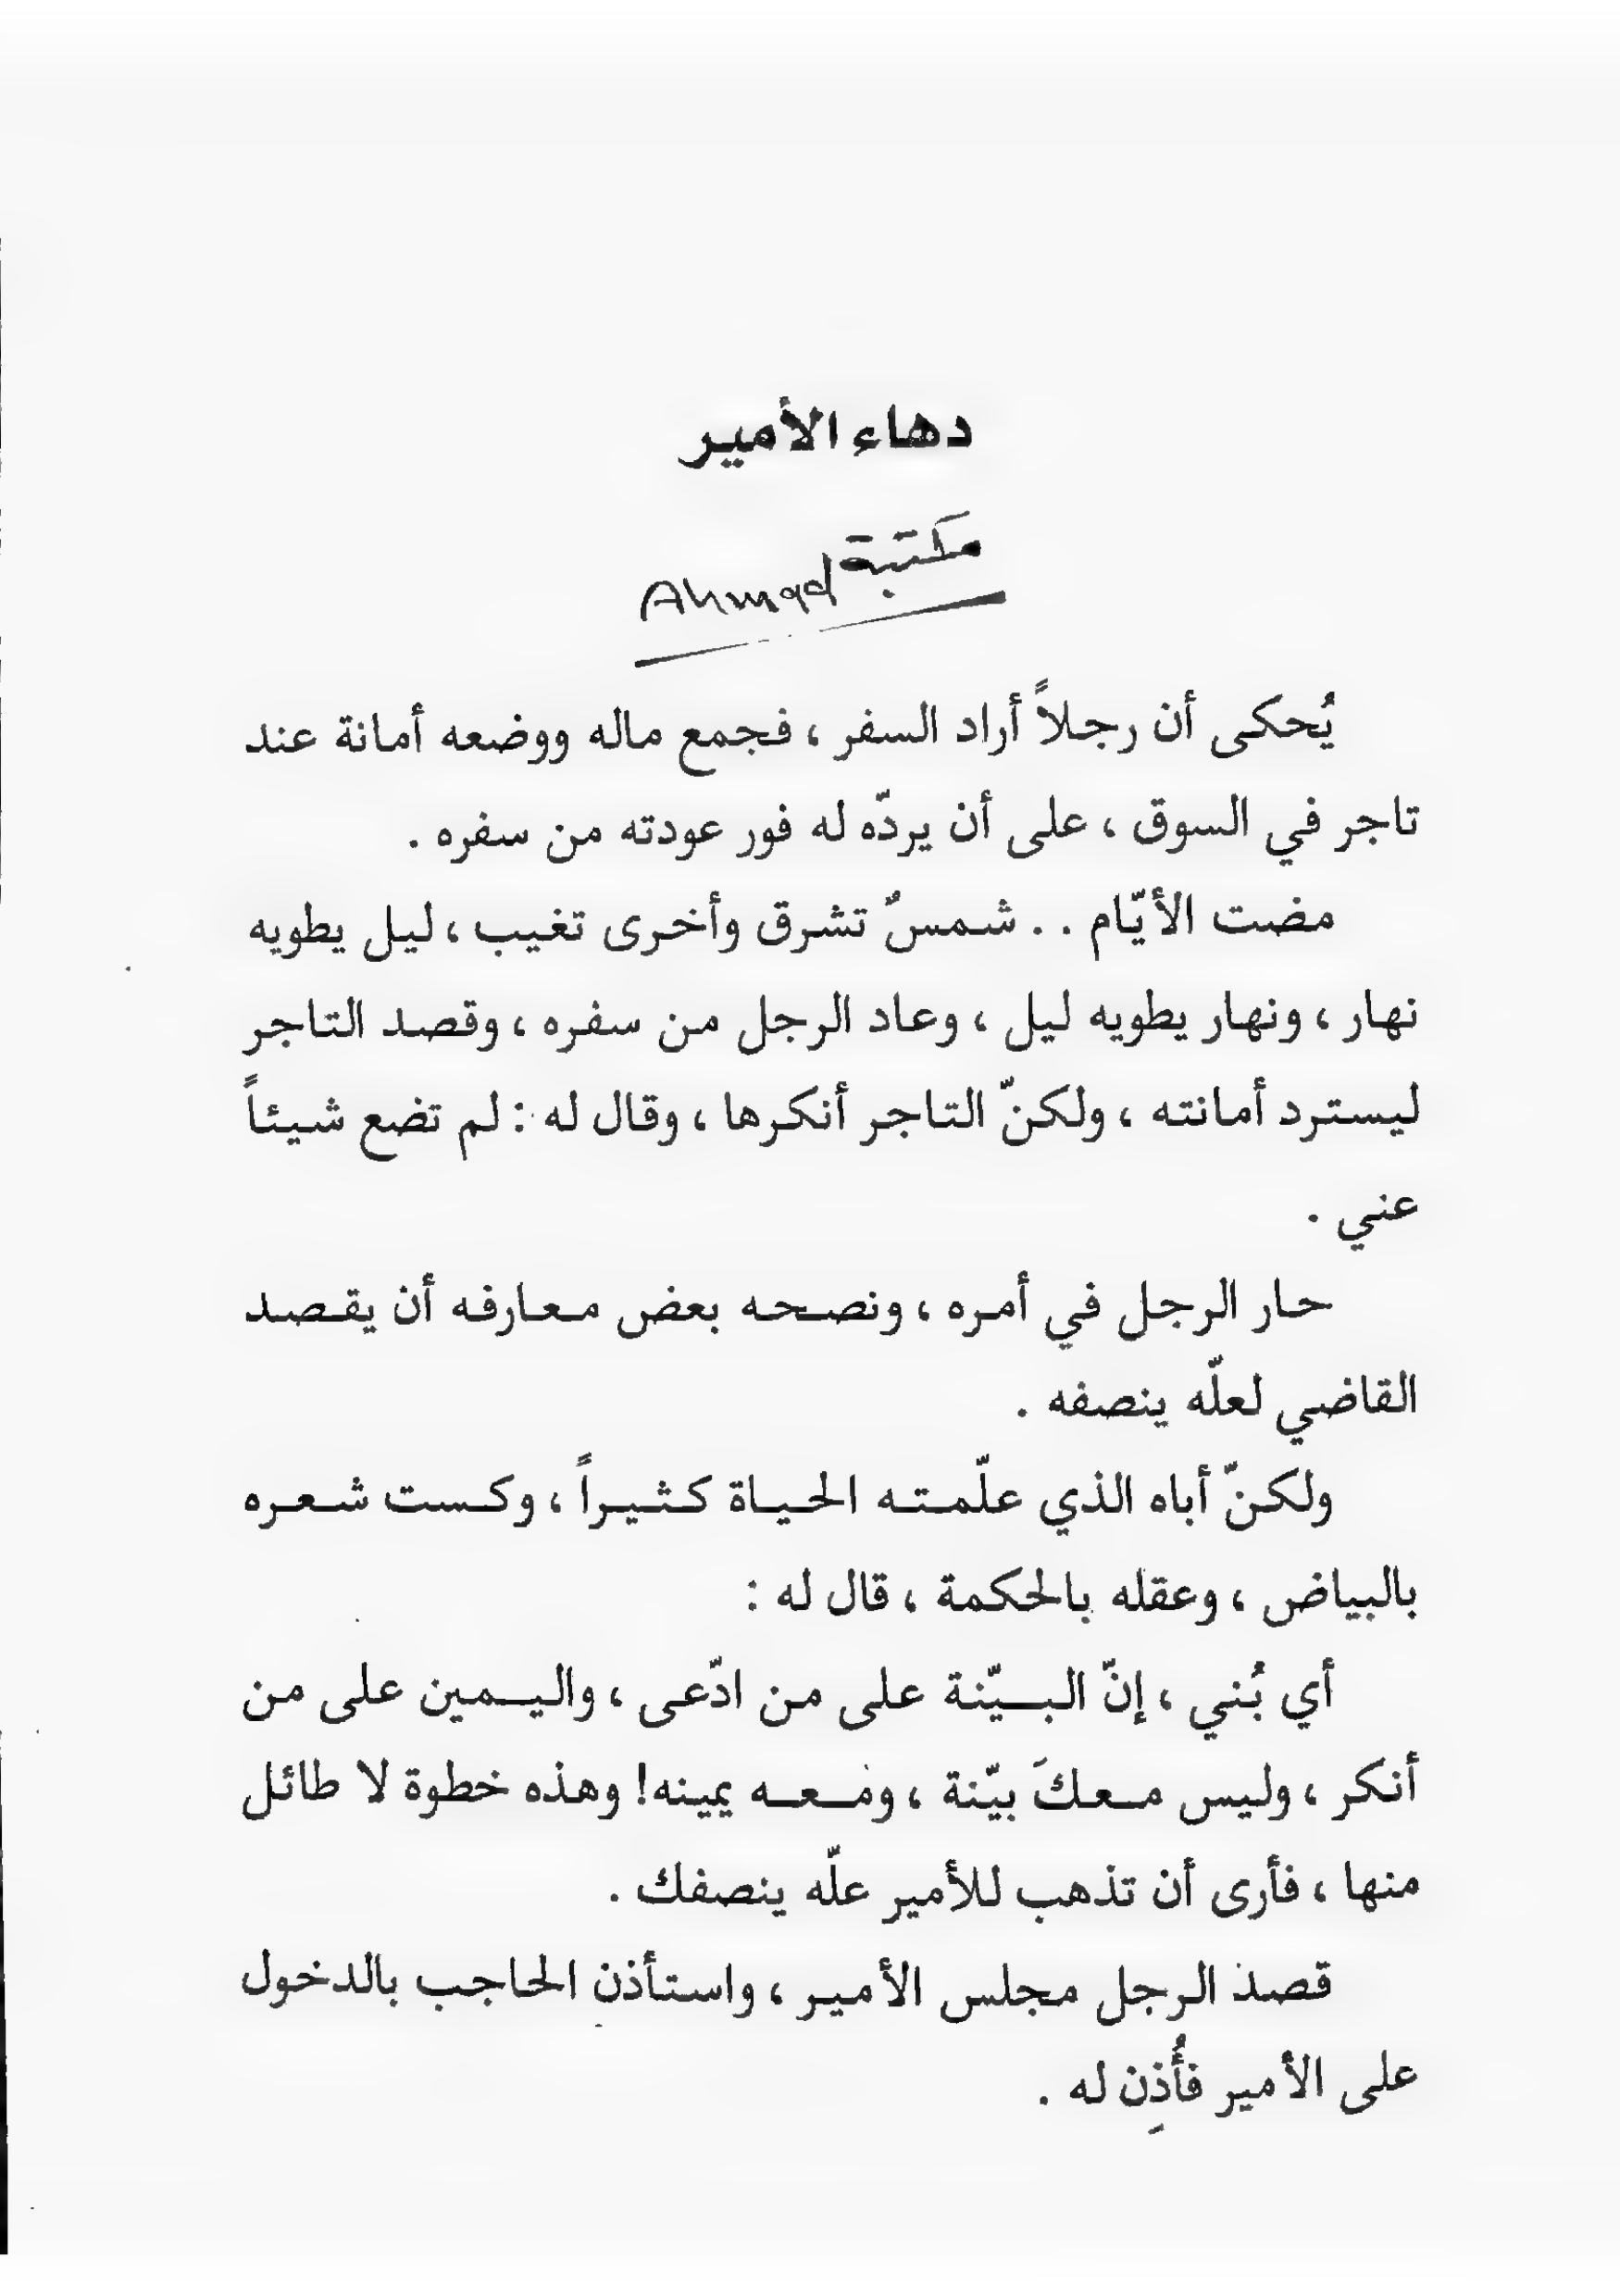 دهاء الأمير
مكتبة Ahmad
يُحكى أن رجلاً أراد السفر ، فجمع ماله ووضعه أمانة عند
تاجر في السوق ، على أن يردّه له فور عودته من سفره .
مضت الأيّام . . شمسٌ تشرق وأخرى تغيب ، ليل يطويه
نهار ، ونهار يطويه ليل ، وعاد الرجل من سفره ، وقصد التاجر
ليسترد أمانته ، ولكنّ التاجر أنكرها ، وقال له : لم تضع شيئاً
عني .
حار الرجل في أمره ، ونصحه بعض معارفه أن يقصد
القاضي لعلّه ينصفه .
ولكنّ أباه الذي علّمته الحياة كثيراً ، وكست شعره
بالبياض ، وعقله بالحكمة ، قال له :
أي بُني ، إنّ البيّنة على من ادّعى ، واليمين على من
أنكر ، وليس معكَ بيّنة ، ومعه يمينه! وهذه خطوة لا طائل
منها ، فأرى أن تذهب للأمير علّه ينصفك .
قصد الرجل مجلس الأمير ، واستأذن الحاجب بالدخول
على الأمير فأُذِن له .